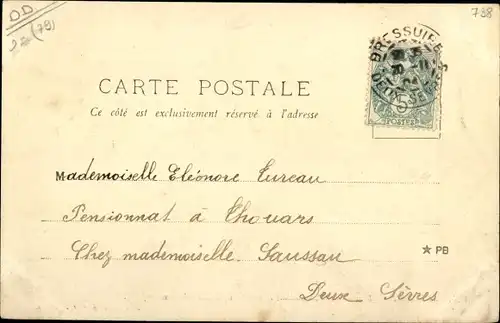 D.D.
(79)
738
BRESSUIRE
DEUX-SÈVRES
CARTE POSTALE
Ce côté est exclusivement réservé à l'adresse
5
POSTES
Mademoiselle Eléonore Tureau
Pensionnat à Thouars
Chez mademoiselle Saussau
★ PB
Deux-Sèvres